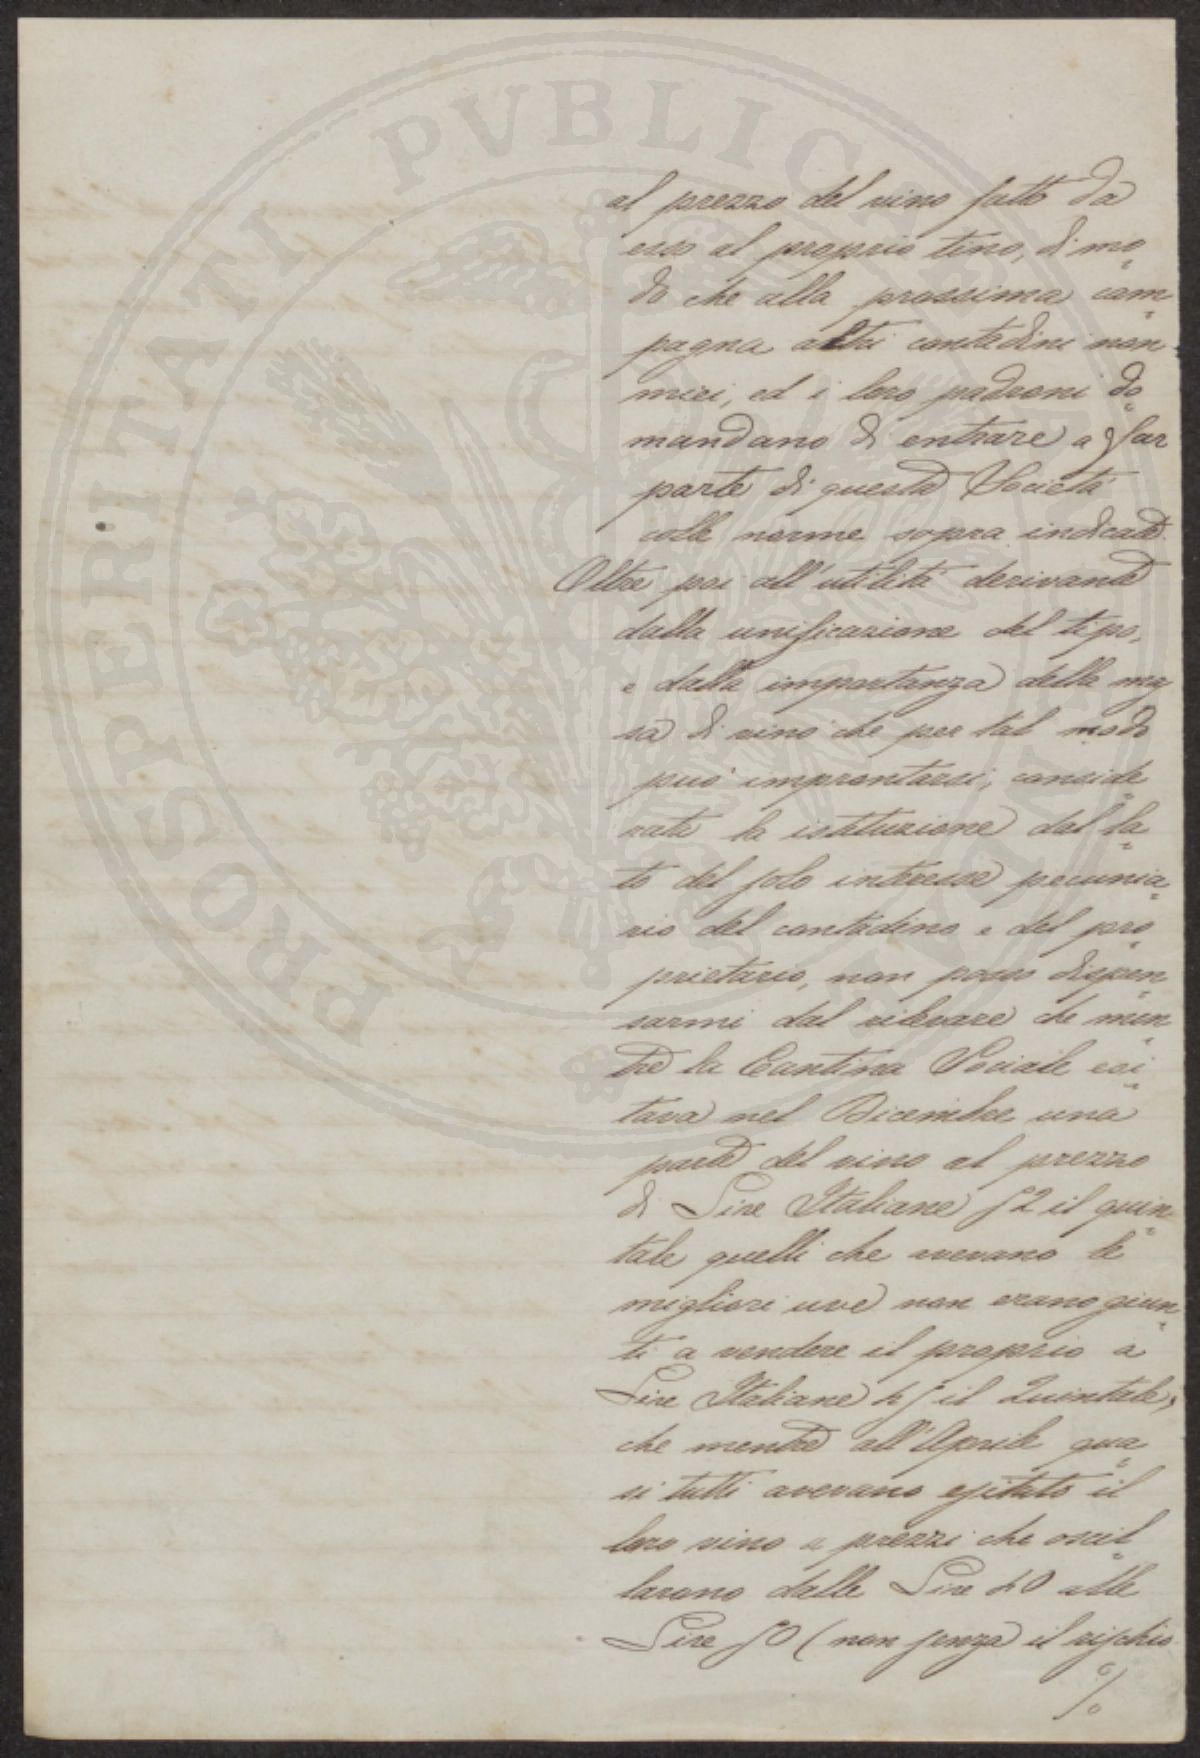 PROSPERITATI PVBLICAE
al prezzo del vino fatto da
esso al proprio tino, di mo
do che alla prossima cam
pagna altri contadini non
miei, ed i loro padroni do
mandano di entrare a far
parte di questa Società
colle norme sopra indicate.
Oltre poi all'utilità derivante
dalla unificazione del tipo,
e dalla importanza della mas
sa di vino che per tal modo
può improntarsi, conside
rata la istituzione dal la
to del solo interesse pecunia
rio del contadino e del pro
prietario, non posso dispen
sarmi dal rilevare che men
tre la Cantina Sociale esi
tava nel Dicembre una
parte del vino al prezzo
di Lire Italiane 52 il quin
tale quelli che avevano le
migliori uve non erano giun
ti a vendere il proprio a
Lire Italiane 45 il Quintale,
che mentre all'Aprile qua
si tutti avevano esitato il
loro vino a prezzi che oscil
larono dalle Lire 40 alle
Lire 50 (non senza il rischio
%